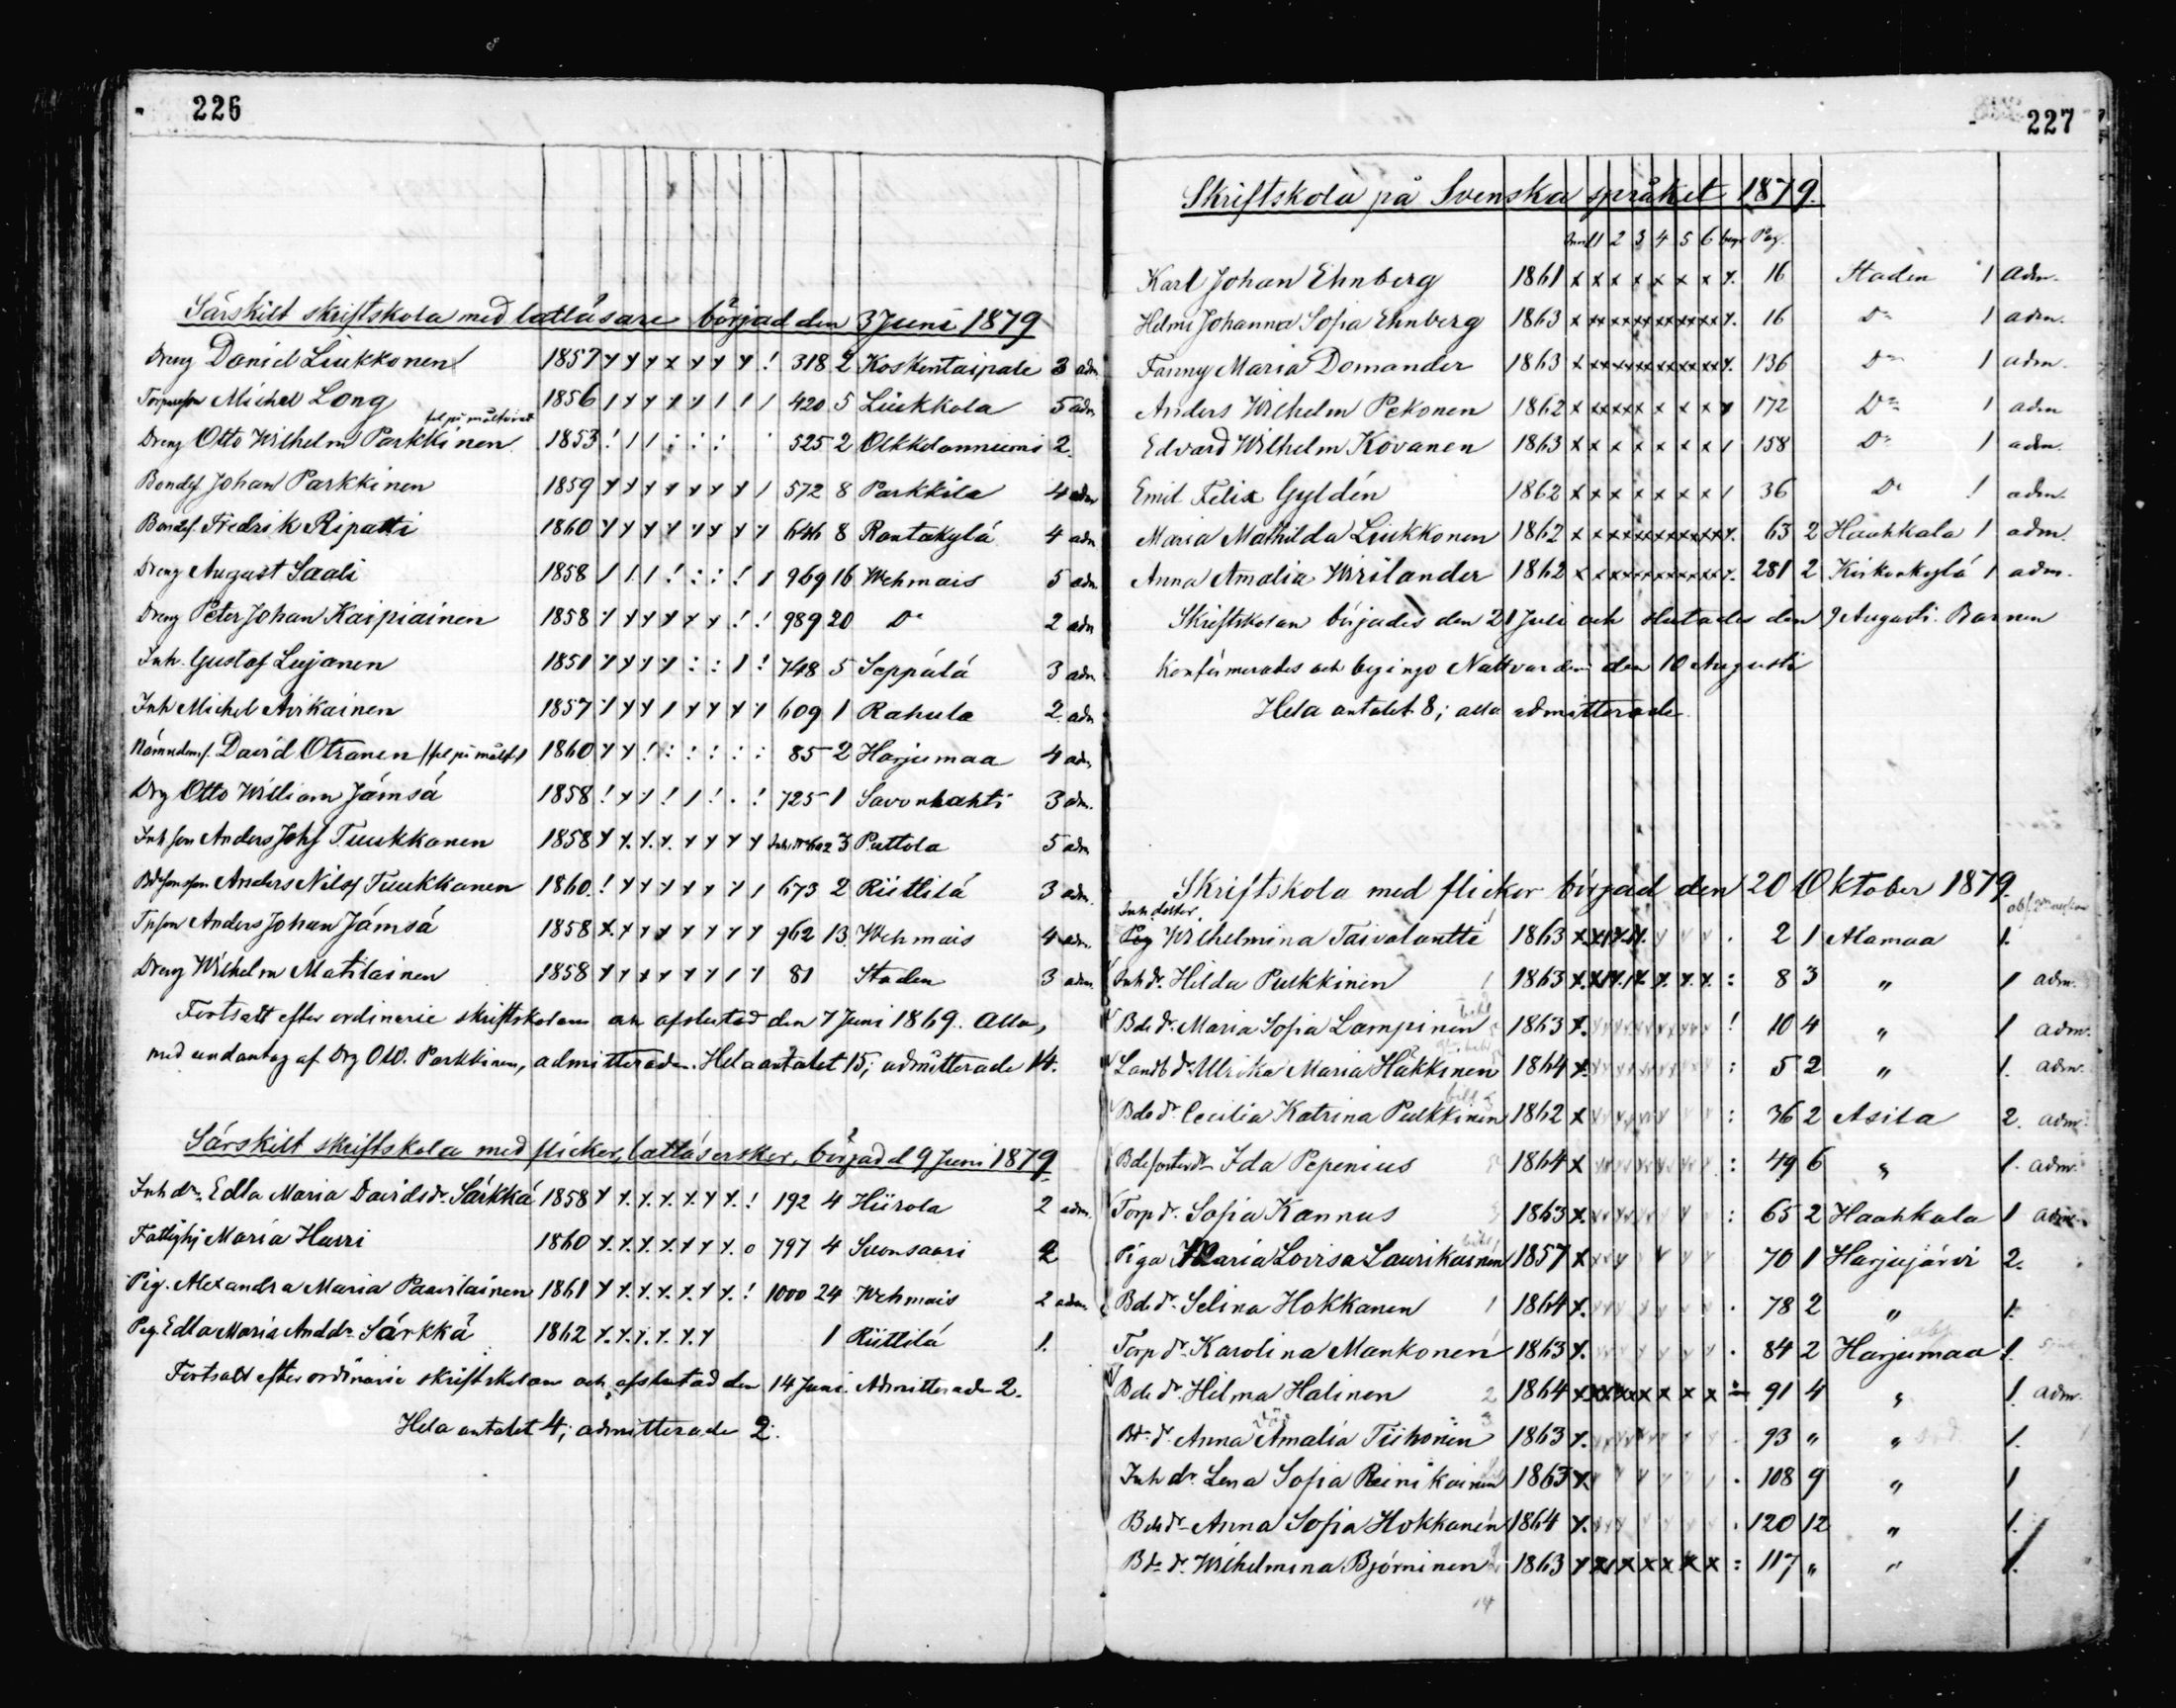 226
Särskilt skriftskola med latläsare börjad den 3 Juni 1879
Dreng Daniel Liukkonen 1857 318 2 Koskentaipale 3 adm.
Michel Long 1856 420 5 Liukkola 5 adm
fel på målföret
Dreng Otto Wilhelm Parkkinen 1853 525 2 Olkkolanniemi 2.
Bondes. Johan Parkkinen 1859 572 8 Parkkila 4 adm
Bondes. Fredrik Ripatti 1860 646 8 Rantakylä 4 adm
Dreng August Saali 1858 969 16 Wehmais 5 adm
Dreng Peter Johan Kaipiainen 1858 989 20 Do 2 adm
Inh. Gustaf Lujanen 1851 748 5 Seppälä 3 adm
Inh Michel Avikainen 1857 609 1 Rahula 2. adm
Nämndem.s. David Otranen (fel på målf.) 1860 85 2 Harjumaa 4 adm
Drg Otto William Jämsä 1858 725 1 Savonhahti 3 adm.
Inh son Anders Johs Tuukkanen 1858 3 Puttola 5 adm
Anders Nilss Tuukkanen 1860 673 2 Riittilä 3 adm.
Tpson Anders Johan Jämsä 1858 962 13 Wehmais 4 adm.
Dreng Wilhelm Matilainen 1858 81 Staden 3 adm
Fortsatt efter ordinarie skriftskolan och afslutad den 7 Juni 1869. Alla,
med undantag af Drg O.W. Parkkinen, admitterade. Hela antalet 15; admitterade 14.
Särskilt skriftskola med flickor, latläserskor, börjad d 9 Juni 1879
Inh dr. Edla Maria Davidsdr. Särkkä 1858 192 4 Hiirola 2 adm.
Fattighj Maria Harri 1860 797 4 Suonsaari 2
Pig. Alexandra Maria Paavilainen 1861 1000 24 Wehmais 2 adm.
Pig. Edla Maria Anddr Särkkä 1862 1 Riittilä 1.
Fortsatt efter ordinarie skriftskolan och afslutad den 14 Juni. Admitterade 2.
Hela antalet 4; admitterade 2.
227
Skriftskola på Svenska språket 1879.
1 2 3 4 5 6 Pag.
Karl Johan Ehnberg 1861 x x x x x x x x. 16 Staden 1 adm.
Helmi Johanna Sofia Ehnberg 1863 16 Do 1 adm.
Fanny Maria Domander 1863 136 Do 1 adm.
Anders Wilhelm Pekonen 1862 172 Do 1 adm
Edvard Wilhelm Kovanen 1863 158 Do 1 adm.
Emil Felix Gyldén 1862 36 Do 1 adm.
Maria Mathilda Liukkonen 1862 63 2 Haahkala 1 adm.
Anna Amalia Wirilander 1862 281 2 Kirkonkylä 1 adm.
Skriftskolan börjades den 21 Juli och slutades den 9 Augusti. Barnen
konfirmerades och begingo Nattvarden den 10 Augusti
Hela antalet 8; alla admitterade.
Skriftskola med flickor börjad den 20 Oktober 1879.
Inh. dotter
Pig Wilhelmina Taivalantti 1863 2 1 Alamaa 1.
Inh dr. Hilda Pulkkinen 1863 8 3 " 1 adm.
Bde dr. Maria Sofia Lampinen 1863 10 4 " 1 adm.
Landb dr Ulrika Maria Häkkinen 1864 5 2 " 1. adm.
Bde dr Cecilia Katrina Pulkkinen 1862 36 2 Asila 2. adm.
Ida Pepenius 1864 49 6 " 1. adm.
Torp dr. Sofia Kannus 1863 65 2 Haahkala 1 adm.
Piga Maria Lovisa Laurikainen 1857 70 1 Harjujärvi 2.
Bde dr. Selina Hokkanen 1864 78 2 " 1.
Torp dr. Karolina Mankonen 1863 84 2 Harjumaa 1.
Bde dr. Hilma Halinen 1864 91 4 " 1. adm.
Bde dr. Anna Amalia Tiihonen 1863 93 " " 1.
Inh dr. Lena Sofia Reinikainen 1863 108 9 " 1
Bde dr Anna Sofia Hokkanen 1864 120 12 " 1.
Bde dr. Wilhelmina Björninen 1863 117 " " 1.
14